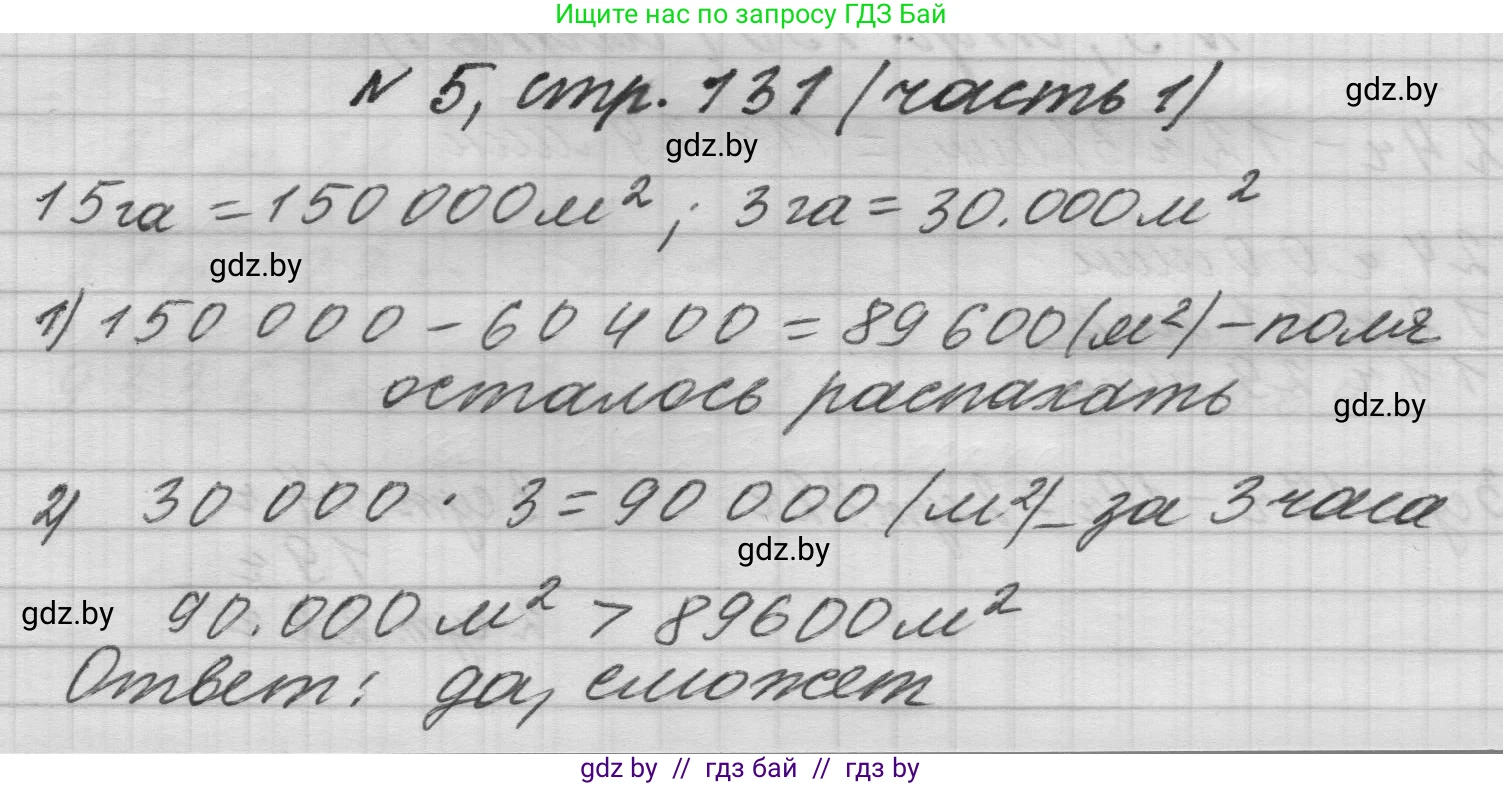 Ищите нас по запросу ГДЗ Бай
N 5, стр. 131 (часть 1)
gdz.by
gdz.by
15га = 150 000м²; 3га = 30.000м²
gdz.by
1) 150 000 - 60 400 = 89 600(м²) - поля
осталось распахать
gdz.by
2) 30 000 · 3 = 90 000 (м²) - за 3 часа
gdz.by
gdz.by
90.000м² > 89600м²
Ответ: да, сможет
gdz by // гдз бай // гдз by